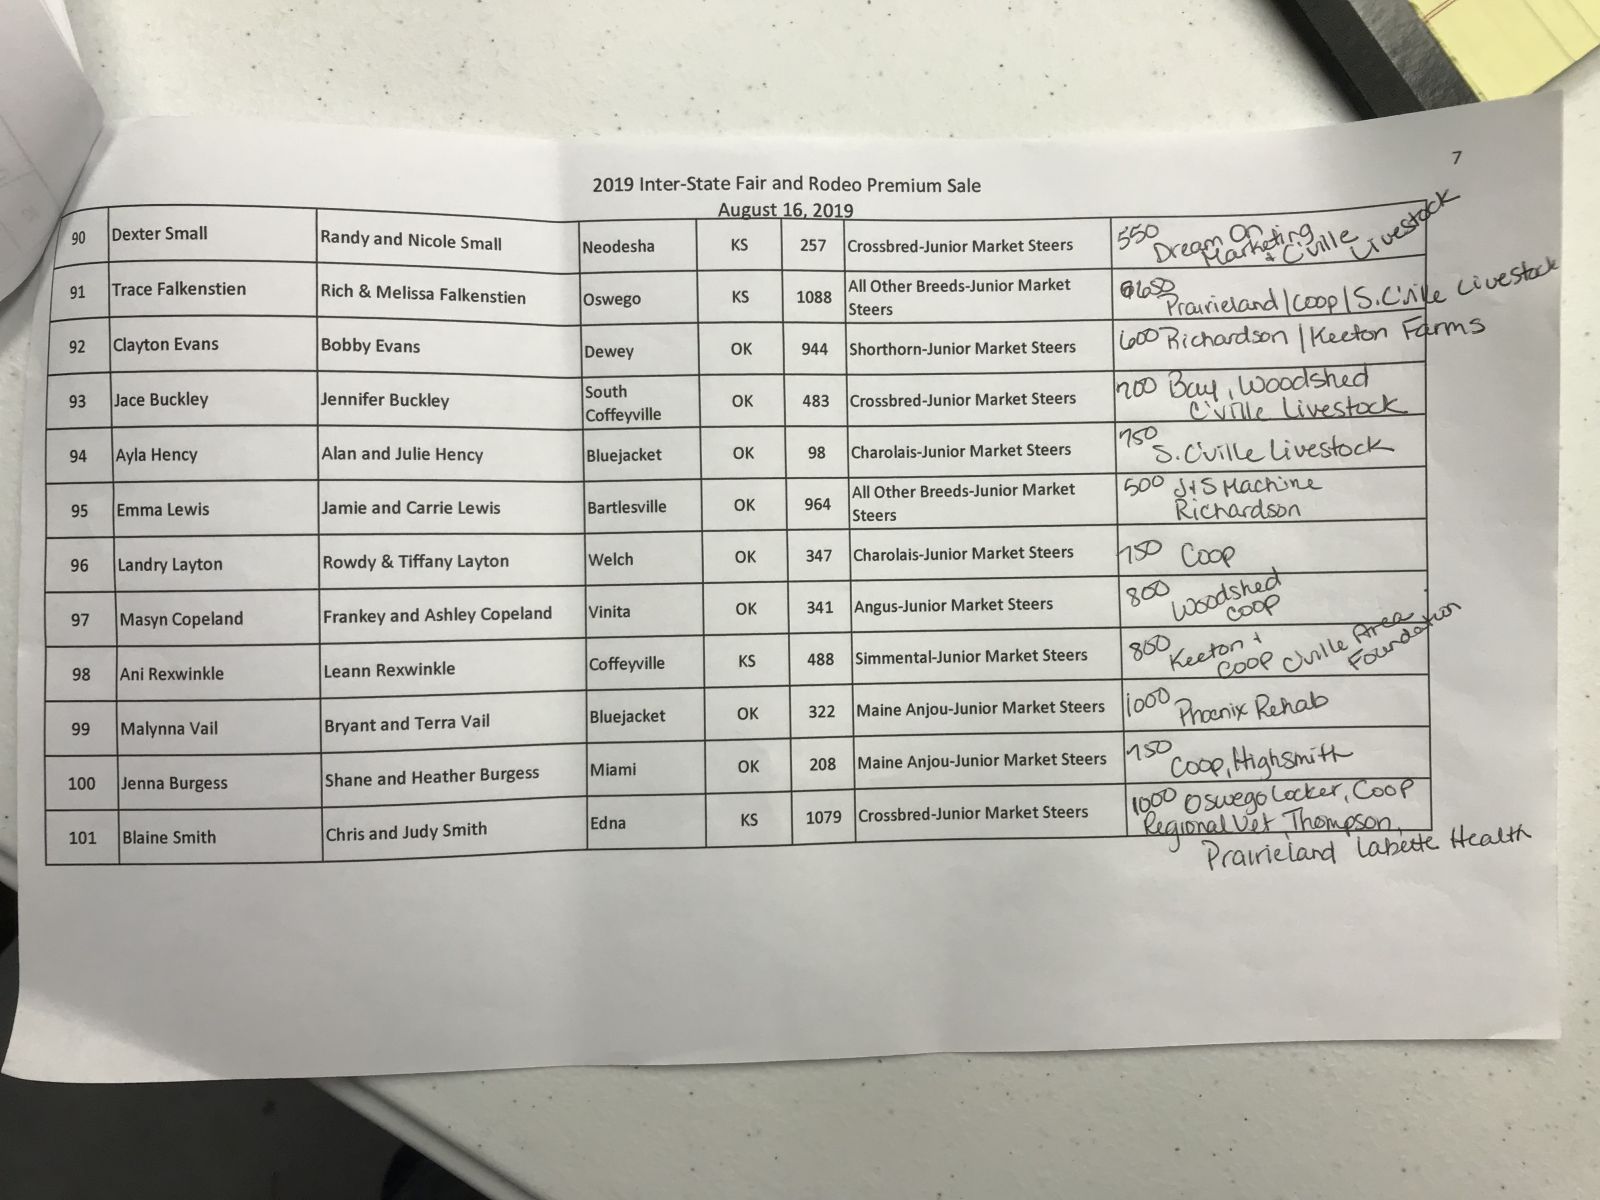 7
2019 Inter-State Fair and Rodeo Premium Sale
August 16, 2019
90 Dexter Small Randy and Nicole Small Neodesha KS 257 Crossbred-Junior Market Steers 550 Dream On Marketing + C'ville Livestock
91 Trace Falkenstien Rich & Melissa Falkenstien Oswego KS 1088 All Other Breeds-Junior Market Steers 650 Prairieland/Coop/S.C'ville Livestock
92 Clayton Evans Bobby Evans Dewey OK 944 Shorthorn-Junior Market Steers 600 Richardson/Keeton Farms
93 Jace Buckley Jennifer Buckley South Coffeyville OK 483 Crossbred-Junior Market Steers 700 Bay, Woodshed C'ville Livestock
94 Ayla Hency Alan and Julie Hency Bluejacket OK 98 Charolais-Junior Market Steers 750 S. C'ville Livestock
95 Emma Lewis Jamie and Carrie Lewis Bartlesville OK 964 All Other Breeds-Junior Market Steers 500 J+S Machine Richardson
96 Landry Layton Rowdy & Tiffany Layton Welch OK 347 Charolais-Junior Market Steers 750 Coop
97 Masyn Copeland Frankey and Ashley Copeland Vinita OK 341 Angus-Junior Market Steers 800 Woodshed Coop
98 Ani Rexwinkle Leann Rexwinkle Coffeyville KS 488 Simmental-Junior Market Steers 800 Keeton + Coop C'ville Area Foundation
99 Malynna Vail Bryant and Terra Vail Bluejacket OK 322 Maine Anjou-Junior Market Steers 1000 Phoenix Rehab
100 Jenna Burgess Shane and Heather Burgess Miami OK 208 Maine Anjou-Junior Market Steers 750 Coop, Highsmith
101 Blaine Smith Chris and Judy Smith Edna KS 1079 Crossbred-Junior Market Steers 1000 Oswego Locker, Coop Regional Vet, Thompson, Prairieland Labette Health